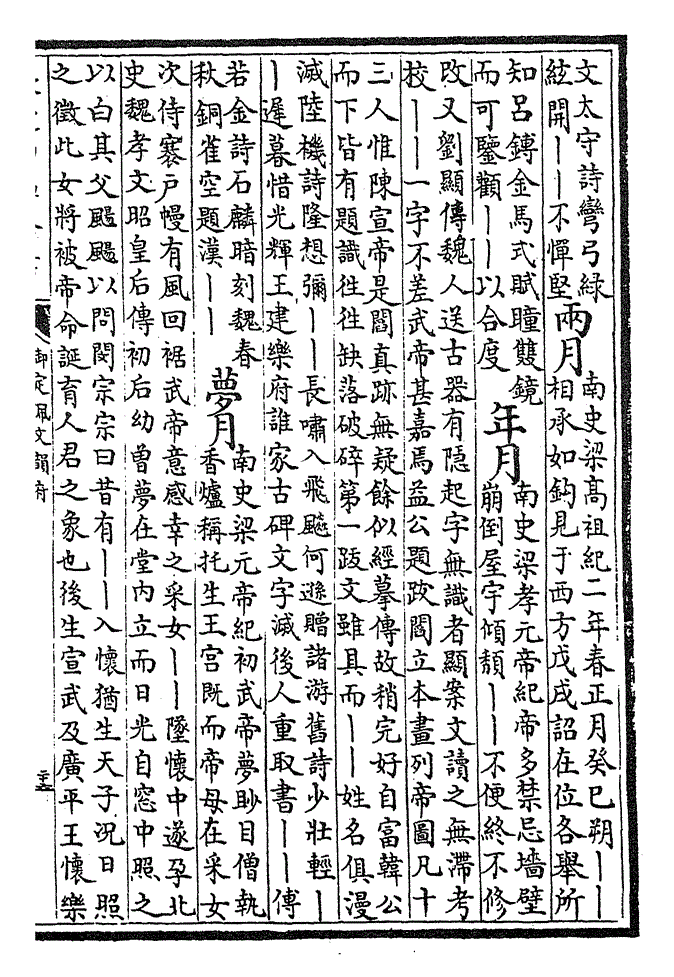 文太守詩彎弓緑
絃開丨丨不憚堅
兩月
南史梁高祖紀二年春正月癸巳朔丨丨
相承如鈎見于西方戊戌詔在位各舉所
知呂鏄金馬式賦瞳雙鏡
而可鑒觀丨丨以合度
年月
南史梁孝元帝紀帝多禁忌墻壁
崩倒屋宇傾頹丨丨不便終不修
改又劉顯傳魏人送古器有隱起字無識者顯案文讀之無滯考
校丨丨一字不差武帝甚嘉焉益公題跋閻立本畫列帝圖凡十
三人惟陳宣帝是閻真跡無疑餘似經摹傳故稍完好自富韓公
而下皆有題識徃徃缺落破碎第一跋文雖具而丨丨姓名俱漫
滅陸機詩隆想彌丨丨長嘯入飛飈何遜贈諸游舊詩少壯輕丨
丨遲暮惜光輝王建樂府誰家古碑文字滅後人重取書丨丨傅
若金詩石麟暗刻魏春
秋銅雀空題漢丨丨
夢月
南史梁元帝紀初武帝夢眇目僧執
香爐稱托生王宫既而帝母在采女
次侍褰戶幔有風回裾武帝意感幸之采女丨丨墜懷中遂孕北
史魏孝文昭皇后傳初后幼曽夢在堂内立而日光自窓中照之
以白其父颺颺以問閔宗宗曰昔有丨丨入懷猶生天子況日照
之徵此女將被帝命誕育人君之象也後生宣武及廣平王懷樂
御定佩文韻府